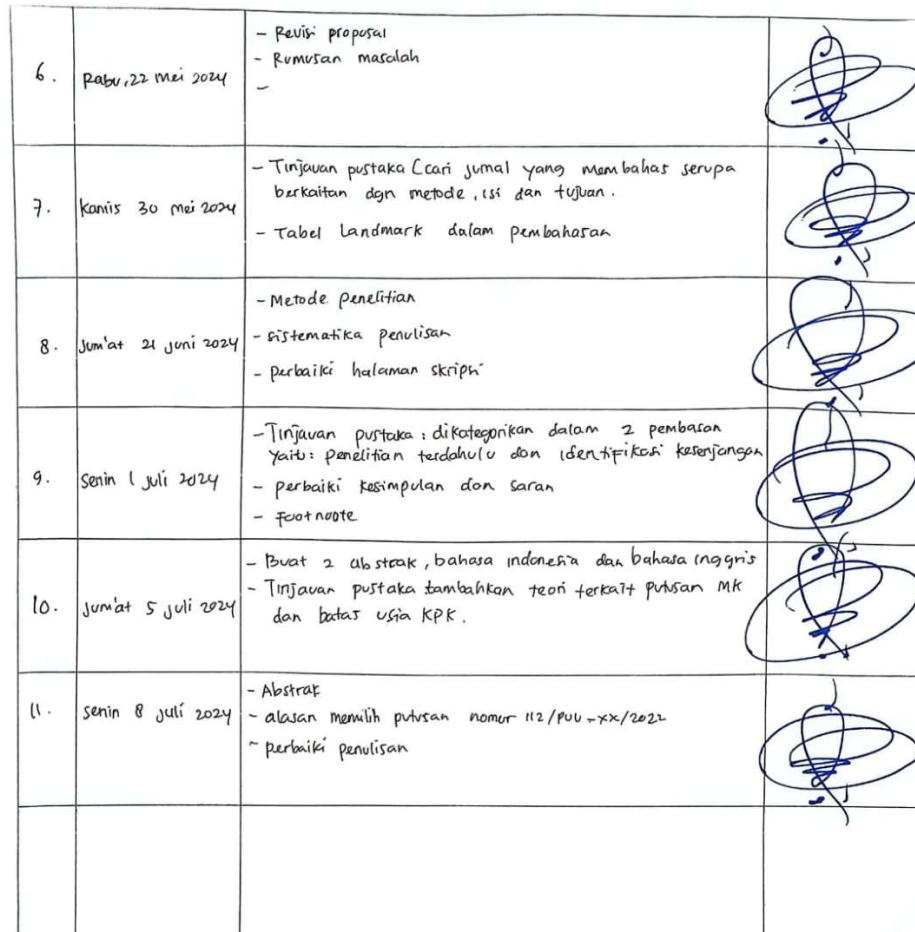 6.
Rabu, 22 mei 2024
- Revisi proposal
- Rumusan masalah
-
7.
Kamis 30 mei 2024
- Tinjauan pustaka (cari jurnal yang membahas serupa
berkaitan dgn metode, isi dan tujuan.
- Tabel Landmark dalam pembahasan
8.
Jum'at 21 juni 2024
- Metode penelitian
- sistematika penulisan
- perbaiki halaman skripsi
9.
Senin 1 juli 2024
- Tinjauan pustaka : dikategorikan dalam 2 pembasan
yaitu: penelitian terdahulu dan identifikasi kesenjangan
- perbaiki kesimpulan dan saran
- Footnoote
10.
Jum'at 5 juli 2024
- Buat 2 abstrak, bahasa indonesia dan bahasa inggris
- Tinjauan pustaka tambahkan teori terkait putusan MK
dan batas usia KPK.
11.
Senin 8 juli 2024
- Abstrak
- alasan memilih putusan nomor 112/PUU-XX/2022
- perbaiki penulisan